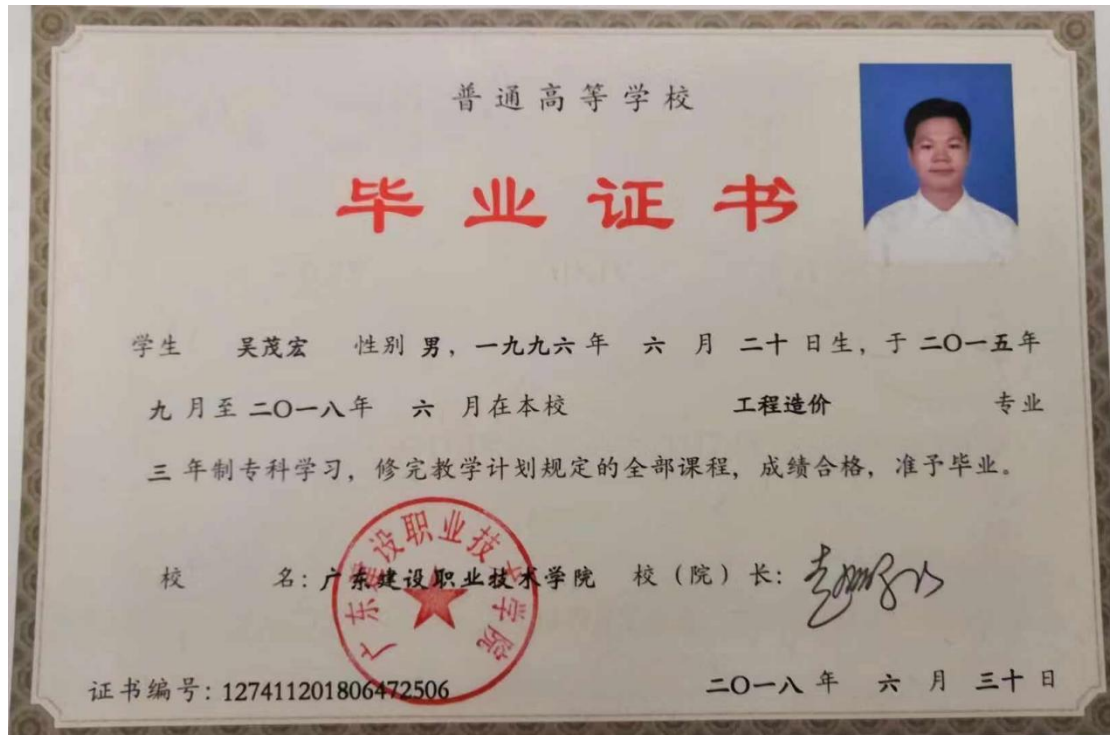 普通高等学校
毕业证书
学生 吴茂宏 性别 男，一九九六年 六 月 二十 日生，于 二〇一五年
九 月至 二〇一八年 六 月在本校 工程造价 专业
三 年制专科学习，修完教学计划规定的全部课程，成绩合格，准予毕业。
校 名：广东建设职业技术学院 校（院）长：
广东建设职业技术学院
证书编号：127411201806472506
二〇一八 年 六 月 三十 日